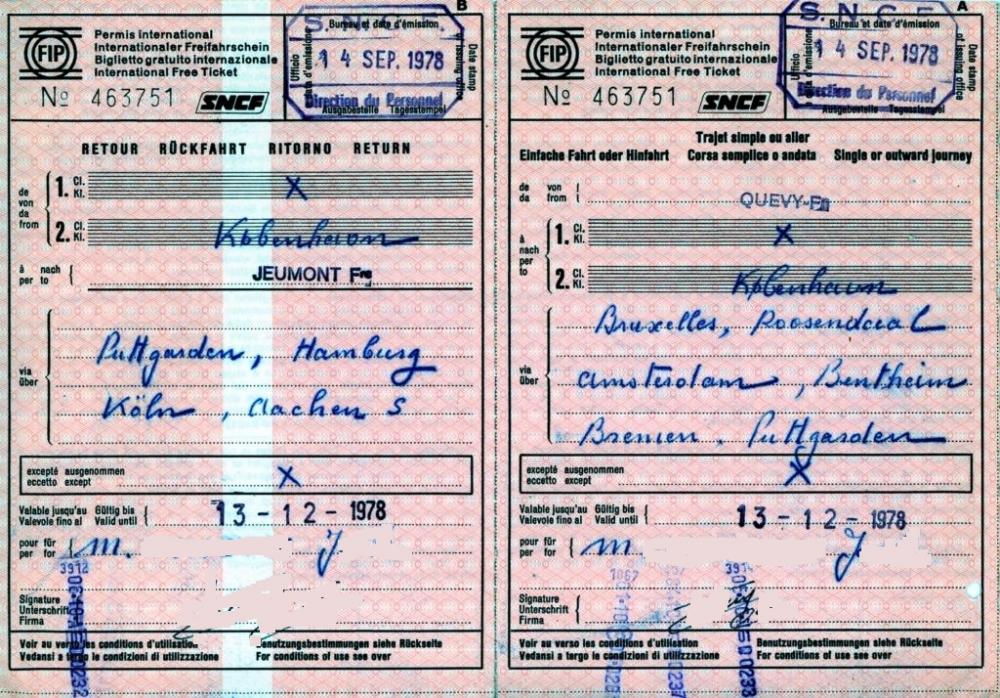 B
FIP
Permis international
Internationaler Freifahrschein
Biglietto gratuito internazionale
International Free Ticket
Nº 463751
SNCF
Bureau et date d'émission
14 SEP. 1978
Direction du Personnel
Ausgabestelle Tagesstempel
Ufficio e data d'emissione
Date stamp of issuing office
RETOUR RÜCKFAHRT RITORNO RETURN
de von da from
1. Cl. Kl. X
2. Cl. Kl. København
à nach per to
JEUMONT Fre
via über
Puttgarden, Hamburg
Köln, Aachen S
excepté ausgenommen
eccetto except
X
Valable jusqu'au Gültig bis
Valevole fino al Valid until
13-12-1978
pour für
per for
M. J
3912
Signature
Unterschrift
Firma
Voir au verso les conditions d'utilisation Benutzungsbestimmungen siehe Rückseite
Vedansi a tergo le condizioni di utilizzazione For conditions of use see over
A
FIP
Permis international
Internationaler Freifahrschein
Biglietto gratuito internazionale
International Free Ticket
Nº 463751
SNCF
S.N.C.F.
Bureau et date d'émission
14 SEP. 1978
Direction du Personnel
Ausgabestelle Tagesstempel
Ufficio
Date stamp of issuing office
Trajet simple ou aller
Einfache Fahrt oder Hinfahrt Corsa semplice o andata Single or outward journey
de von
da from
QUEVY-Fre
à nach per to
1. Cl. Kl. X
2. Cl. Kl. København
via über
Bruxelles, Roosendaal
Amsterdam, Bentheim
Bremen, Puttgarden
excepté ausgenommen
eccetto except
X
Valable jusqu'au Gültig bis
Valevole fino al Valid until
13-12-1978
pour für
per for
M. J
Signature
Unterschrift
Firma
Voir au verso les conditions d'utilisation Benutzungsbestimmungen siehe Rückseite
Vedansi a tergo le condizioni di utilizzazione For conditions of use see over